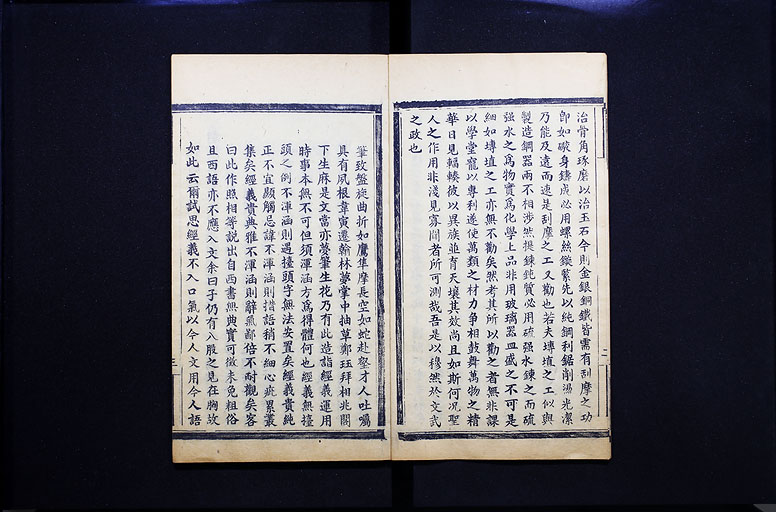 治骨角琢磨以治玉石今則金銀銅鐵皆需有刮摩之功
即如礮身鑄成必用螺絲鏇鏨先以純鋼利鋸削湯光潔
乃能及遠而速是刮摩之工又勸也若夫塼埴之工似與
製造銅器兩不相涉然提鍊鈍質必用硫强水鍊之而硫
强水之爲物實爲化學上品非用玻璃器皿盛之不可是
細如塼埴之工亦無不勸矣然考其所以勸之者無非課
以學堂寵以專利遂使萬類之材力爭相鼓舞萬物之精
華日見輻輳彼以異族並育天壤其效尚且如斯何况聖
人之作用非淺見寡聞者所可測哉吾是以穆然於文武
之政也
筆致盤旋曲折如鷹隼摩長空如蛇赴壑才人吐囑
具有夙根韋寅遷翰林夢掌中抽草鄭珏拜相兆閣
下生麻是文當亦夢筆生花乃有此造詣經義運用
時事本無不可但須渾涵方爲得體何也經義無擡
頭之例不渾涵則遇擡頭字無法安置矣經義貴純
正不宜顯觸忌諱不渾涵則措語稍不細心疵累叢
集矣經義貴典雅不渾涵則辭氣鄙倍不耐觀矣客
曰此作照相等說出自西書無典實可徵未免粗俗
且西語亦不應入文余曰子仍有八股之見在胸故
如此云爾試思經義不入口氣以今人文用今人語
二
三